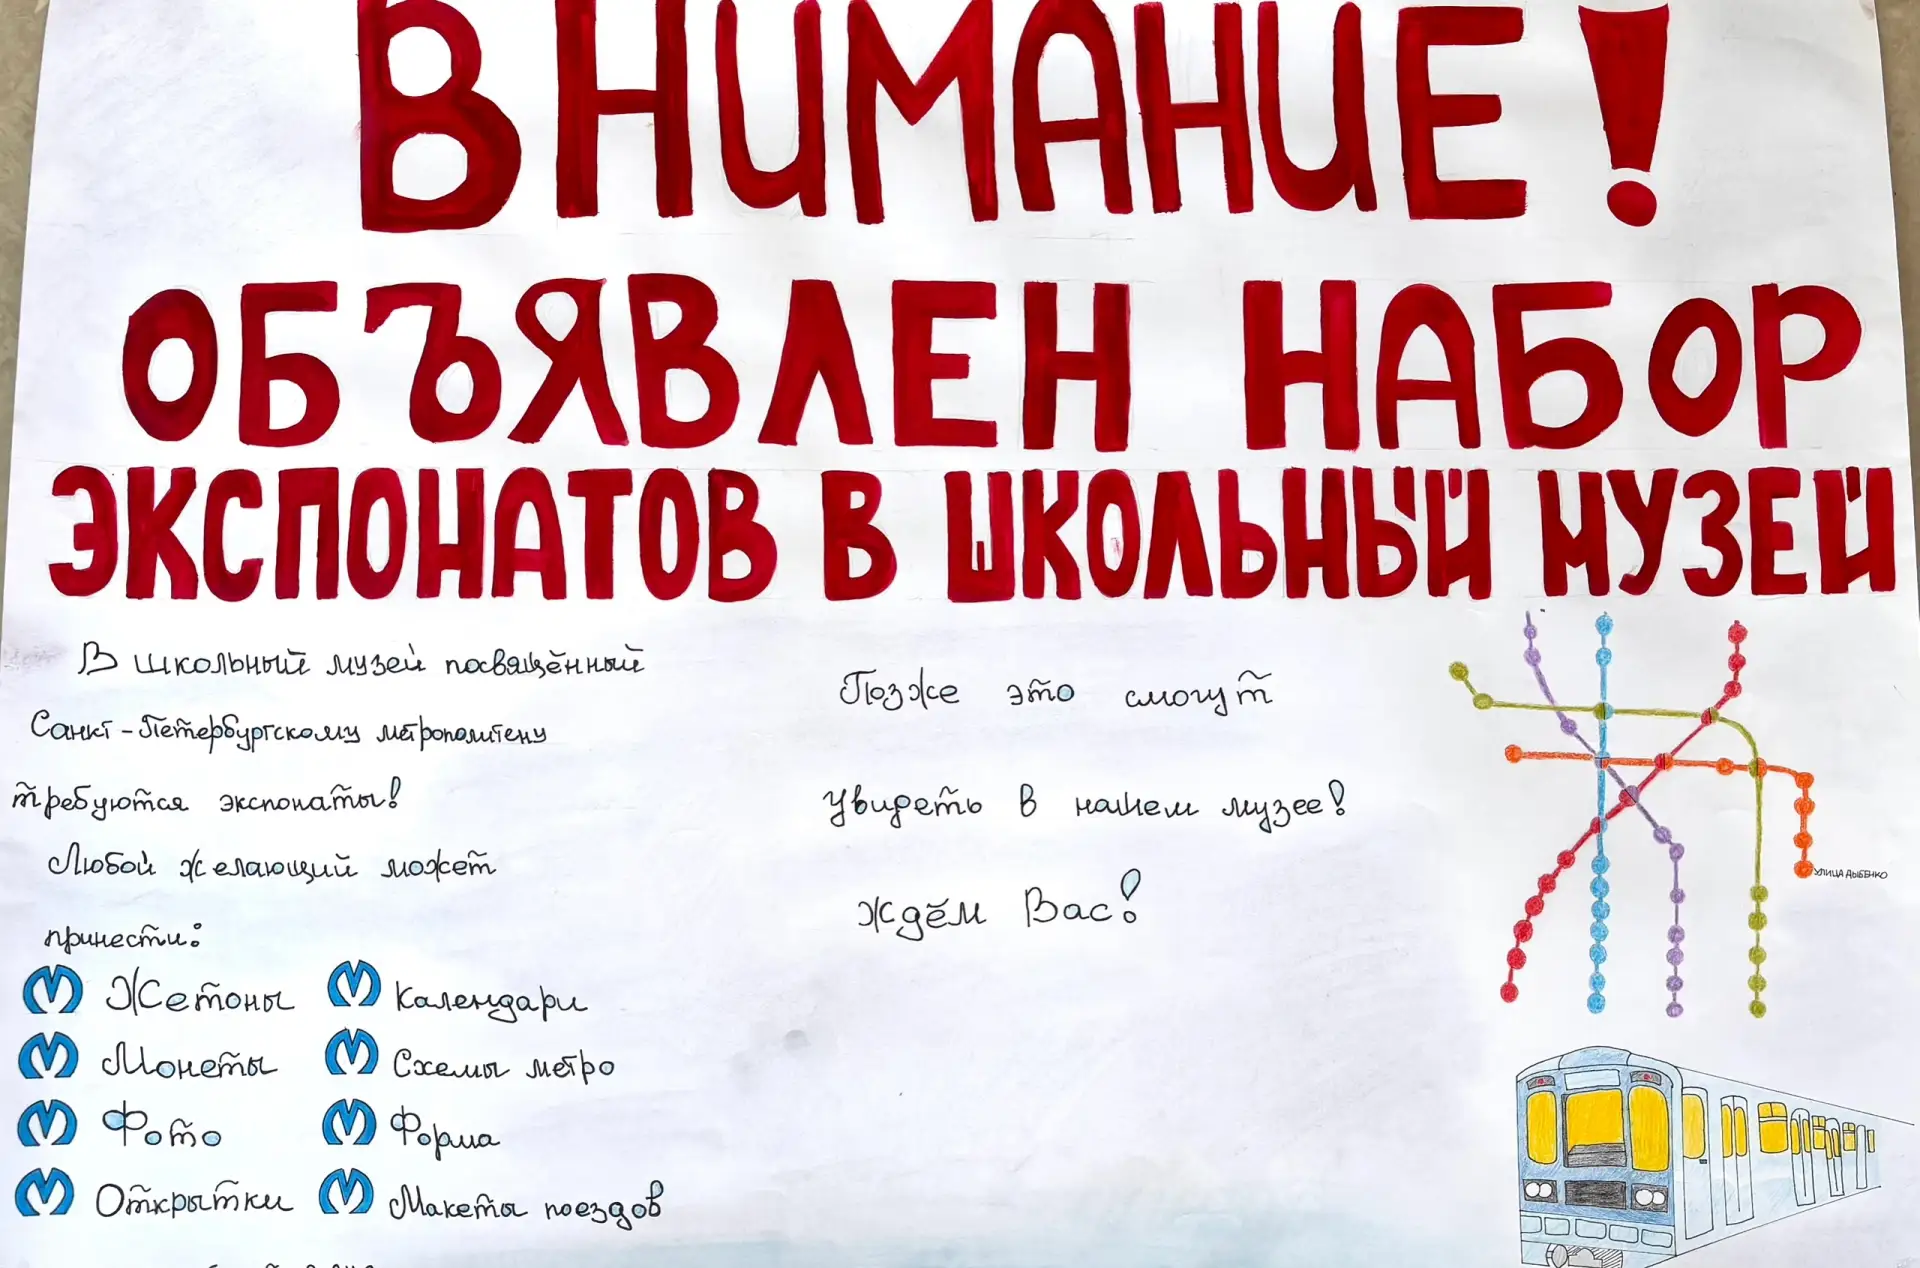 ВНИМАНИЕ!
ОБЪЯВЛЕН НАБОР
ЭКСПОНАТОВ В ШКОЛЬНЫЙ МУЗЕЙ
В школьный музей посвящённый
Санкт-Петербургскому метрополитену
требуются экспонаты!
Любой желающий может
принести:
Жетоны
Монеты
Фото
Открытки
Календари
Схемы метро
Форма
Макеты поездов
Позже это смогут
увидеть в нашем музее!
Ждём Вас!
УЛИЦА ДЫБЕНКО